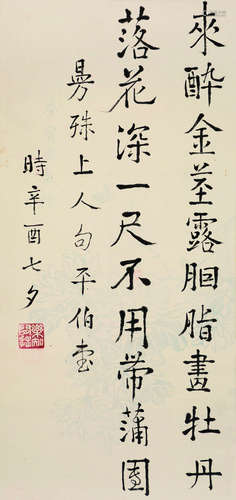 來醉金莖露胭脂畫牡丹
落花深一尺不用帶蒲團
曼殊上人句平伯書
時辛酉七夕